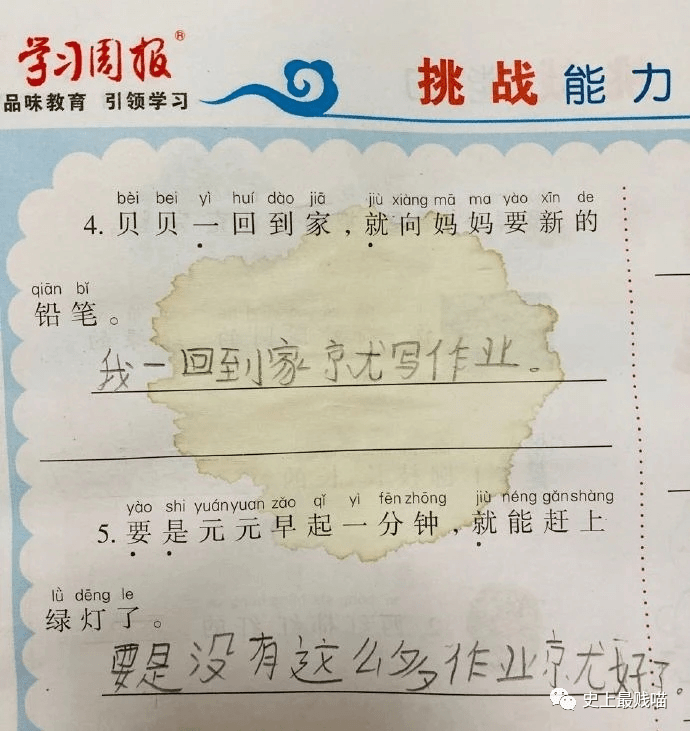 学习周报®
品味教育 引领学习
挑战能力
bèi bei yì huí dào jiā jiù xiàng mā ma yào xīn de
4. 贝贝一回到家，就向妈妈要新的
qiān bǐ
铅笔。
我一回到家就写作业。
yào shi yuán yuan zǎo qǐ yì fēn zhōng jiù néng gǎn shàng
5. 要是元元早起一分钟，就能赶上
lǜ dēng le
绿灯了。
要是没有这么多作业就好了。
史上最贱喵